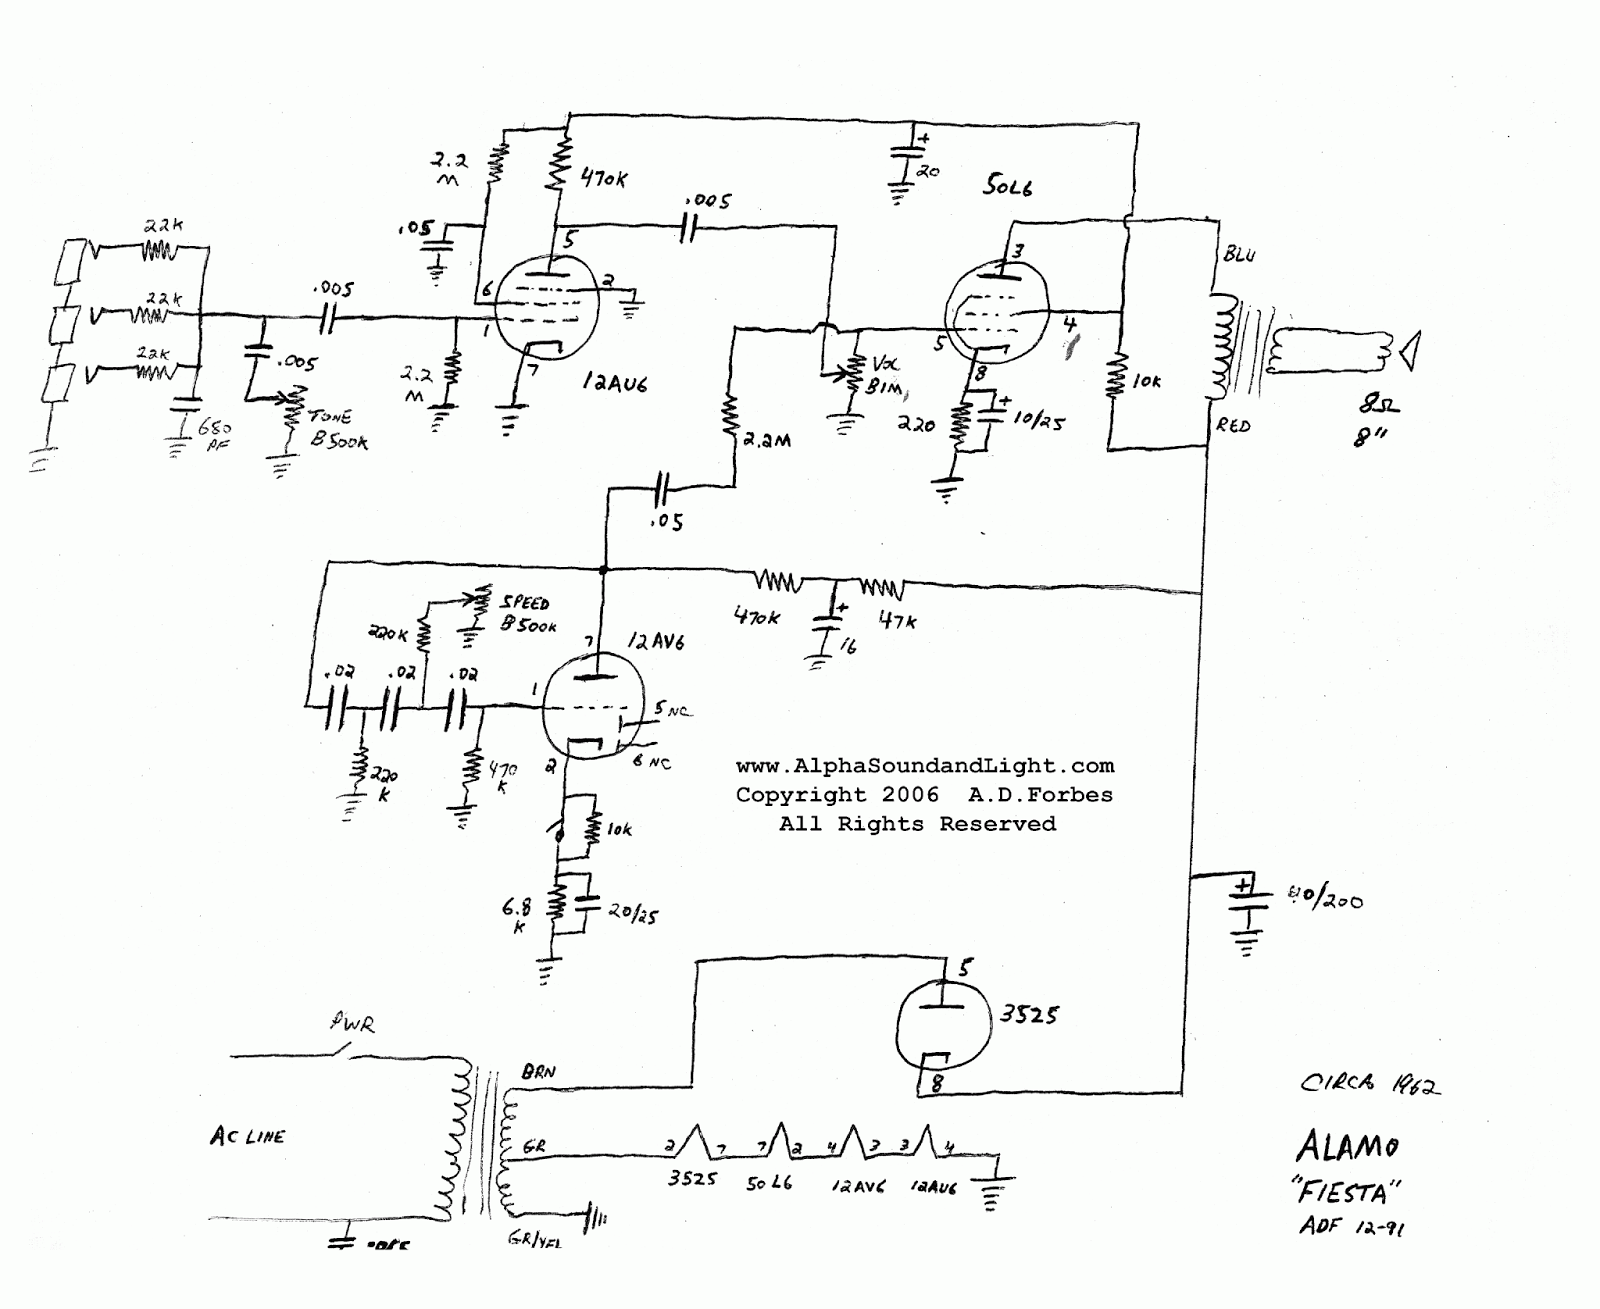 2.2
M
470K
.005
20
50L6
22K
.05
5
3
BLU
22K
.005
6
1
2
5
4
22K
.005
2.2
M
7
12AU6
VOL
B1M
8
10K
680
PF
TONE
B500K
2.2M
220
10/25
RED
8Ω
8"
.05
SPEED
B500K
220K
470K
16
47K
7
12AV6
.02
.02
.02
1
5 NC
6 NC
2
220
K
470
K
10K
www.AlphaSoundandLight.com
Copyright 2006 A.D.Forbes
All Rights Reserved
6.8
K
20/25
40/200
5
3525
8
PWR
BRN
AC LINE
GR
2 7 7 2 4 3 3 4
3525 50L6 12AV6 12AU6
GR/YEL
CIRCA 1962
ALAMO
"FIESTA"
ADF 12-91